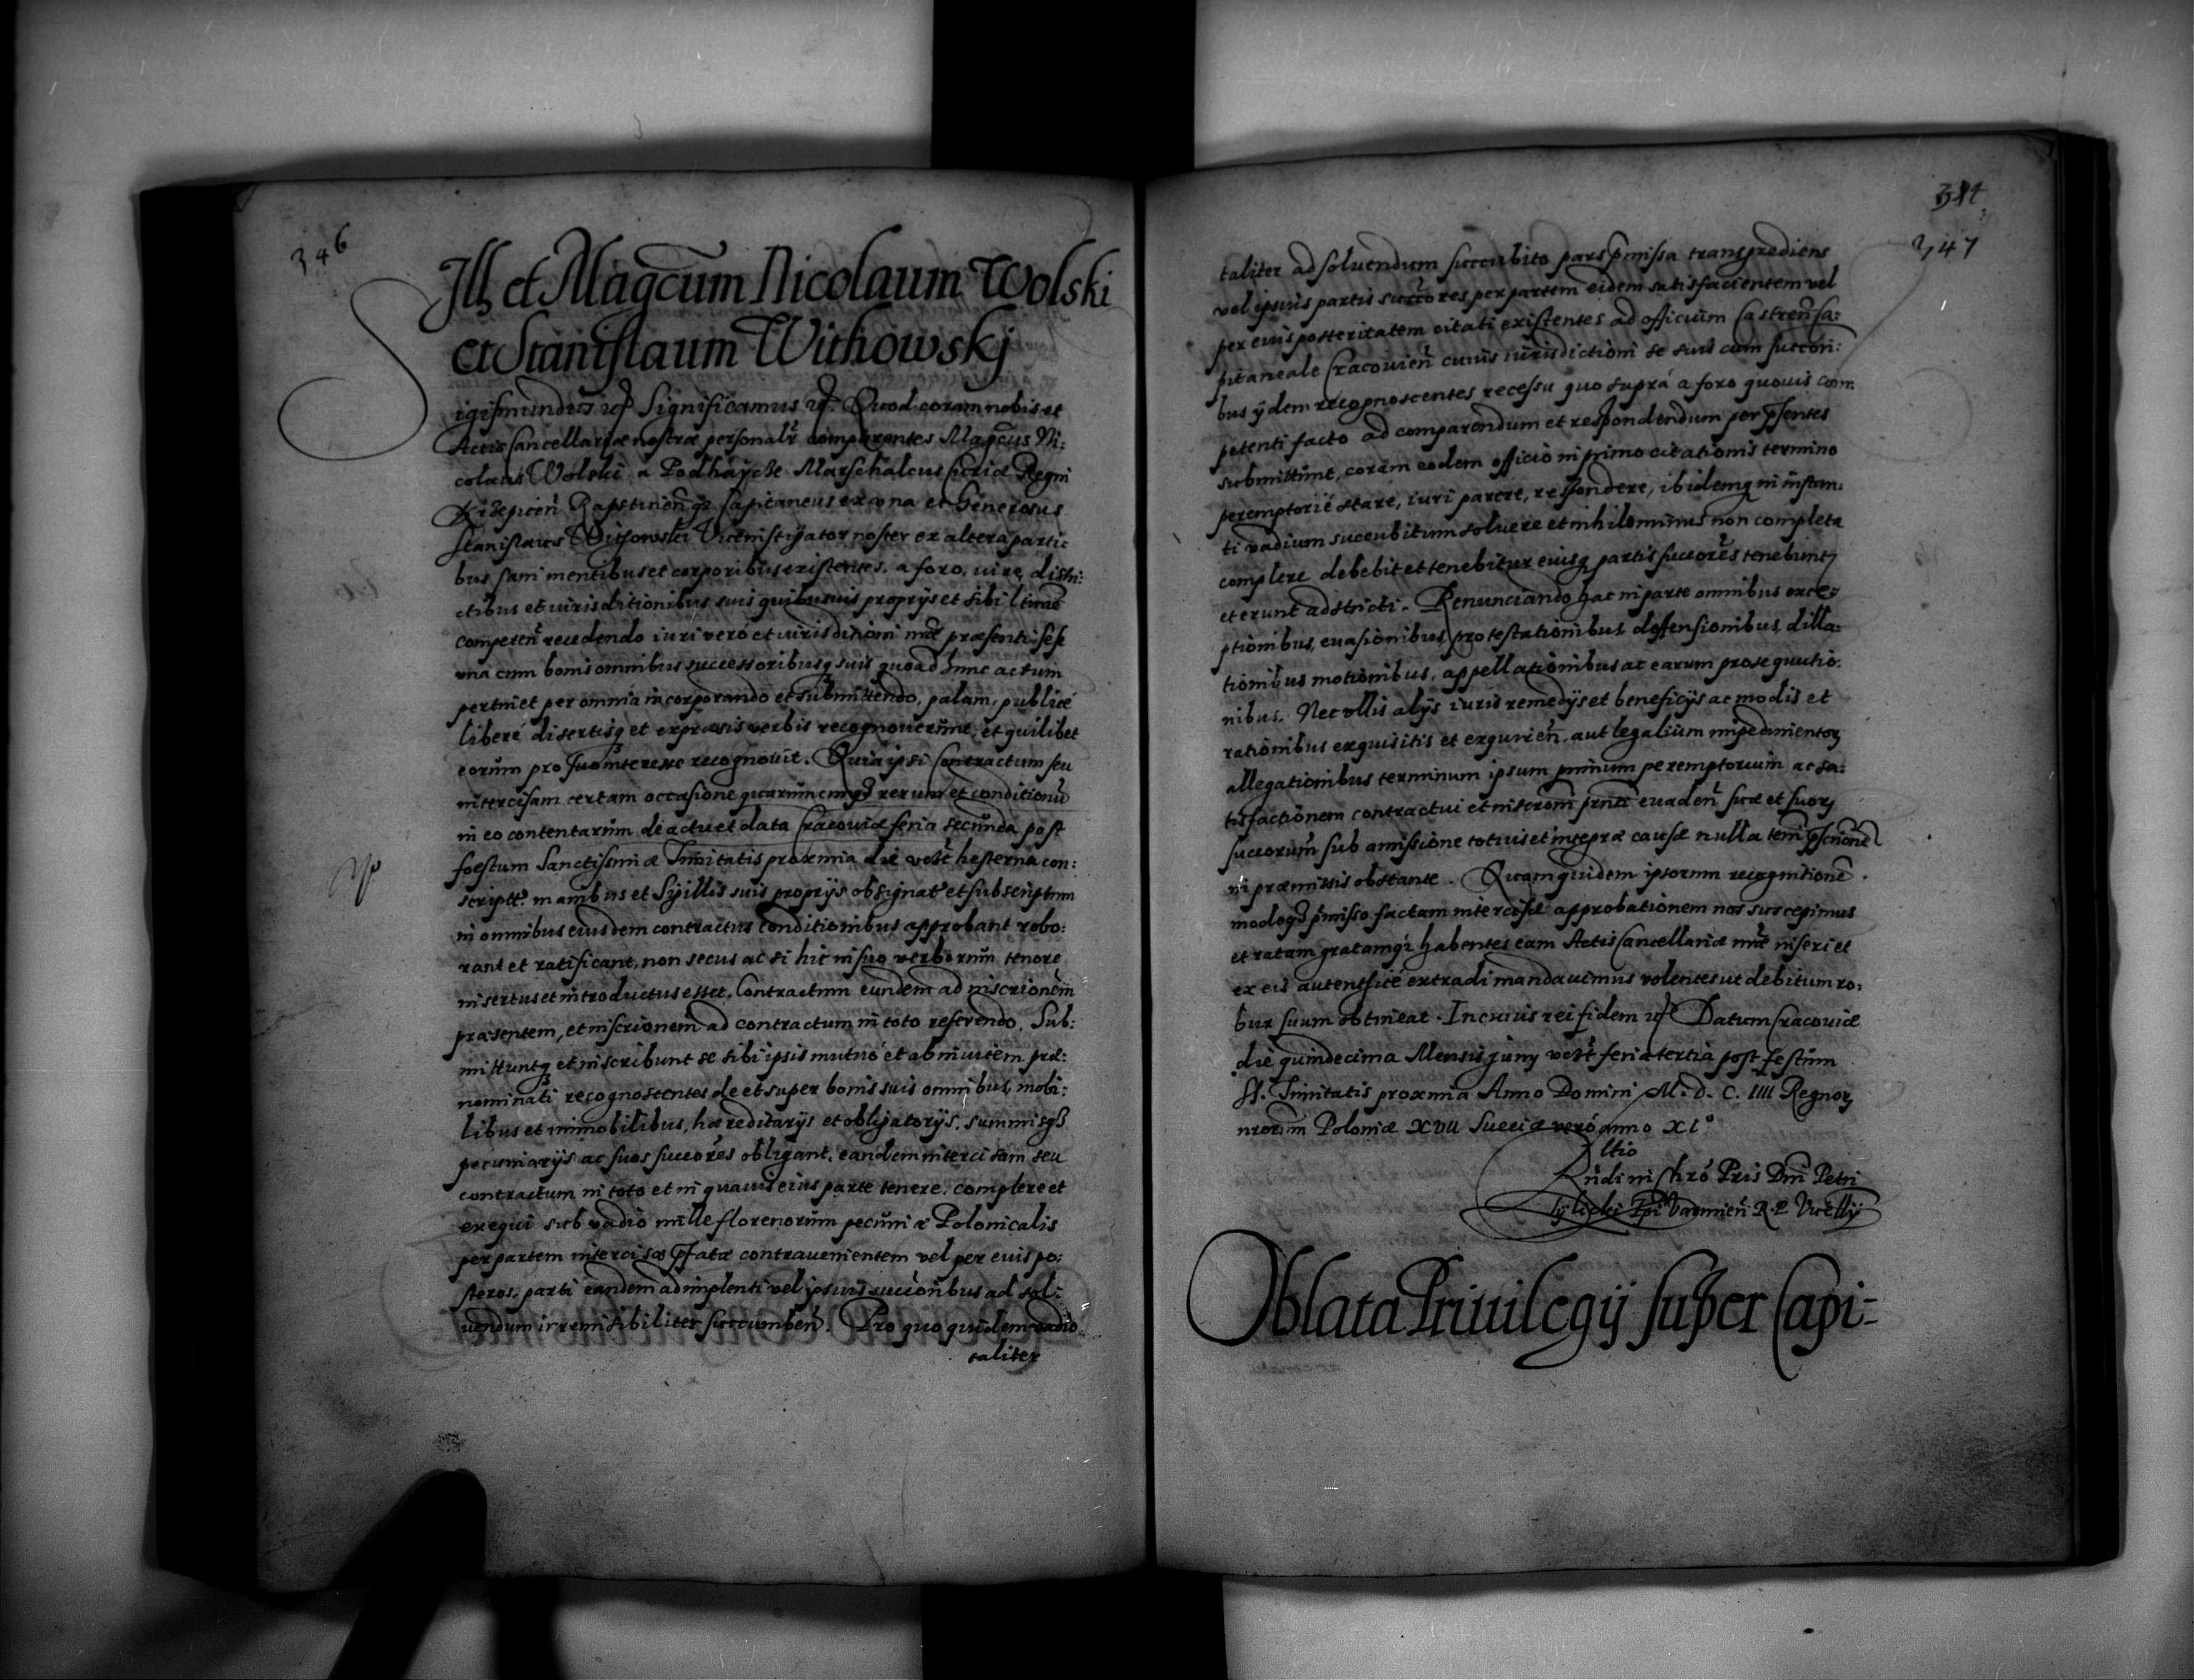 346
Ill et Magcum Nicolaum Wolski
et Stanislaum Withowskj
Sigismundus etc Significamus etc. Quod coram nobis et
Actis Cancellariæ nostræ personalr comparentes Magcus Ni:
colaus Wolski a Podhaycze Marschalcus Curiæ Regni
Krzepicen Rapstinenq Capitaneus ex una et Generosus
Stanislaus Witowski Viceinstigator noster ex altera parti:
bus sani mentibus et corporibus existentes, a foro, iure, distri:
ctibus et iurisditionibus suis quibusuis proprijs et sibi ltime
competen recedendo iuri veró et iurisditioni nræ præsenti sese
una cum bonis omnibus successoribusq suis quoad hunc actum
pertinet per omnia incorporando et submittendo, palam, publicé
liberé disertisq et expressis verbis recognouerunt, et quilibet
eorum pro suo interesse recognouit. Quia ipsi Contractum seu
intercisam certam occasione quarumcunq rerum et conditionu
in eo contentarum de actu et data Cracouiæ feria secunda post
foestum Sanctissimæ Trinitatis proxima die velt hesterna con:
script manibus et Sigillis suis proprijs obsignat et subscriptum
in omnibus eiusdem contractus conditionibus approbant robo:
rant et ratificant, non secus ac si hic in suo verborum tenore
insertus et introductus esset. Contractum eundem ad inscrionem
præsentem, et inscrionem ad contractum in toto referendo. Sub:
mittuntq et inscribunt se sibi ipsis mutuó et ab inuicem præ:
nominati recognoscentes de et super bonis suis omnibus, mobi:
libus et immobilibus, hæreditarijs et obligatorijs, summisq
pecuniarijs ac suos succores obligant, eandem intercisam seu
contractum in toto et in quauis eius parte tenere, complere et
exequi sub vadio mille florenorum pecuniæ Polonicalis
per partem intercisæ pfatæ contrauenientem vel per euis po:
steros, parti eandem adimplenti vel ipsius succoribus ad sol:
uendum irremisibiliter succumben. Pro quo quidem vadio
taliter
347
taliter ad soluendum succubito pars pmissa transgrediens
vel ipsius partis succores per partem eidem satisfacientem vel
per euis posteritatem citati existentes ad officium Castren Ca:
pitaneale Cracouien cuius iurisdictioni se suis cum succori:
bus ijdem recognoscentes recessu quo suprá a foro quouis com
petenti facto ad comparendum et respondendum per psentes
submittunt, coram eodem officio in primo citationis termino
peremptorié stare, iuri parere, respondere, ibidemq in instan:
ti vadium succubitum soluere et nihilominus non completa
complere debebit et tenebitur euisq partis succores tenebunt
et erunt adstricti. Renunciando hac in parte omnibus exce:
ptionibus, euasionibus protestationibus, deffensionibus, dilla:
tionibus motionibus, appellationibus ac earum prosequutio:
nibus. Nec vllis alijs iuris remedijs et beneficijs ac modis et
rationibus exquisitis et exquiren, aut legalium impedimentor
allegationibus terminum ipsum primum peremptorium ac sa:
tisfactionem contractui et inscrom prnti euaden suæ et suor
succorum sub amissione totius et integræ causæ nulla temi pscrione
in præmissis obstante. Quamquidem ipsorum recognitione.
modoq pmisso factam intercisæ approbationem nos suscepimus
et ratam gratamq habentes eam Actis Cancellariæ nræ inseri et
ex eis autenticé extradi mandauimus volentes ut debitum ro:
bur suum obtineat. In cuius rei fidem etc Datum Cracouiæ
die quindecima Mensis Juny velt feria tertia post festum
SS. Trinitatis proxima Anno Domini M. D. C. IIII Regnor
nrorum Poloniæ XVII Sueciæ veró anno XI°
Rltio
Rndi in Chró Pris Dni Petri
Tylicki Epi Varmien R. P. Vicecllij
Oblata Priuilegij super Capi-